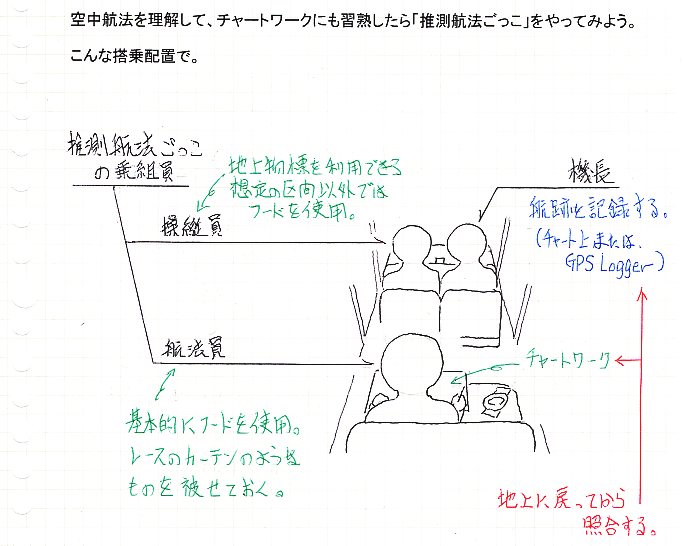 空中航法を理解して、チャートワークにも習熟したら「推測航法ごっこ」をやってみよう。
こんな搭乗配置で。
推測航法ごっこ
の乗組員
地上物標を利用できる
想定の区間以外では
フードを使用。
操縦員
機長
航跡を記録する。
(チャート上または、
GPS Logger)
航法員
チャートワーク
基本的にフードを使用。
レースのカーテンのような
ものを被せておく。
地上に戻ってから
照合する。